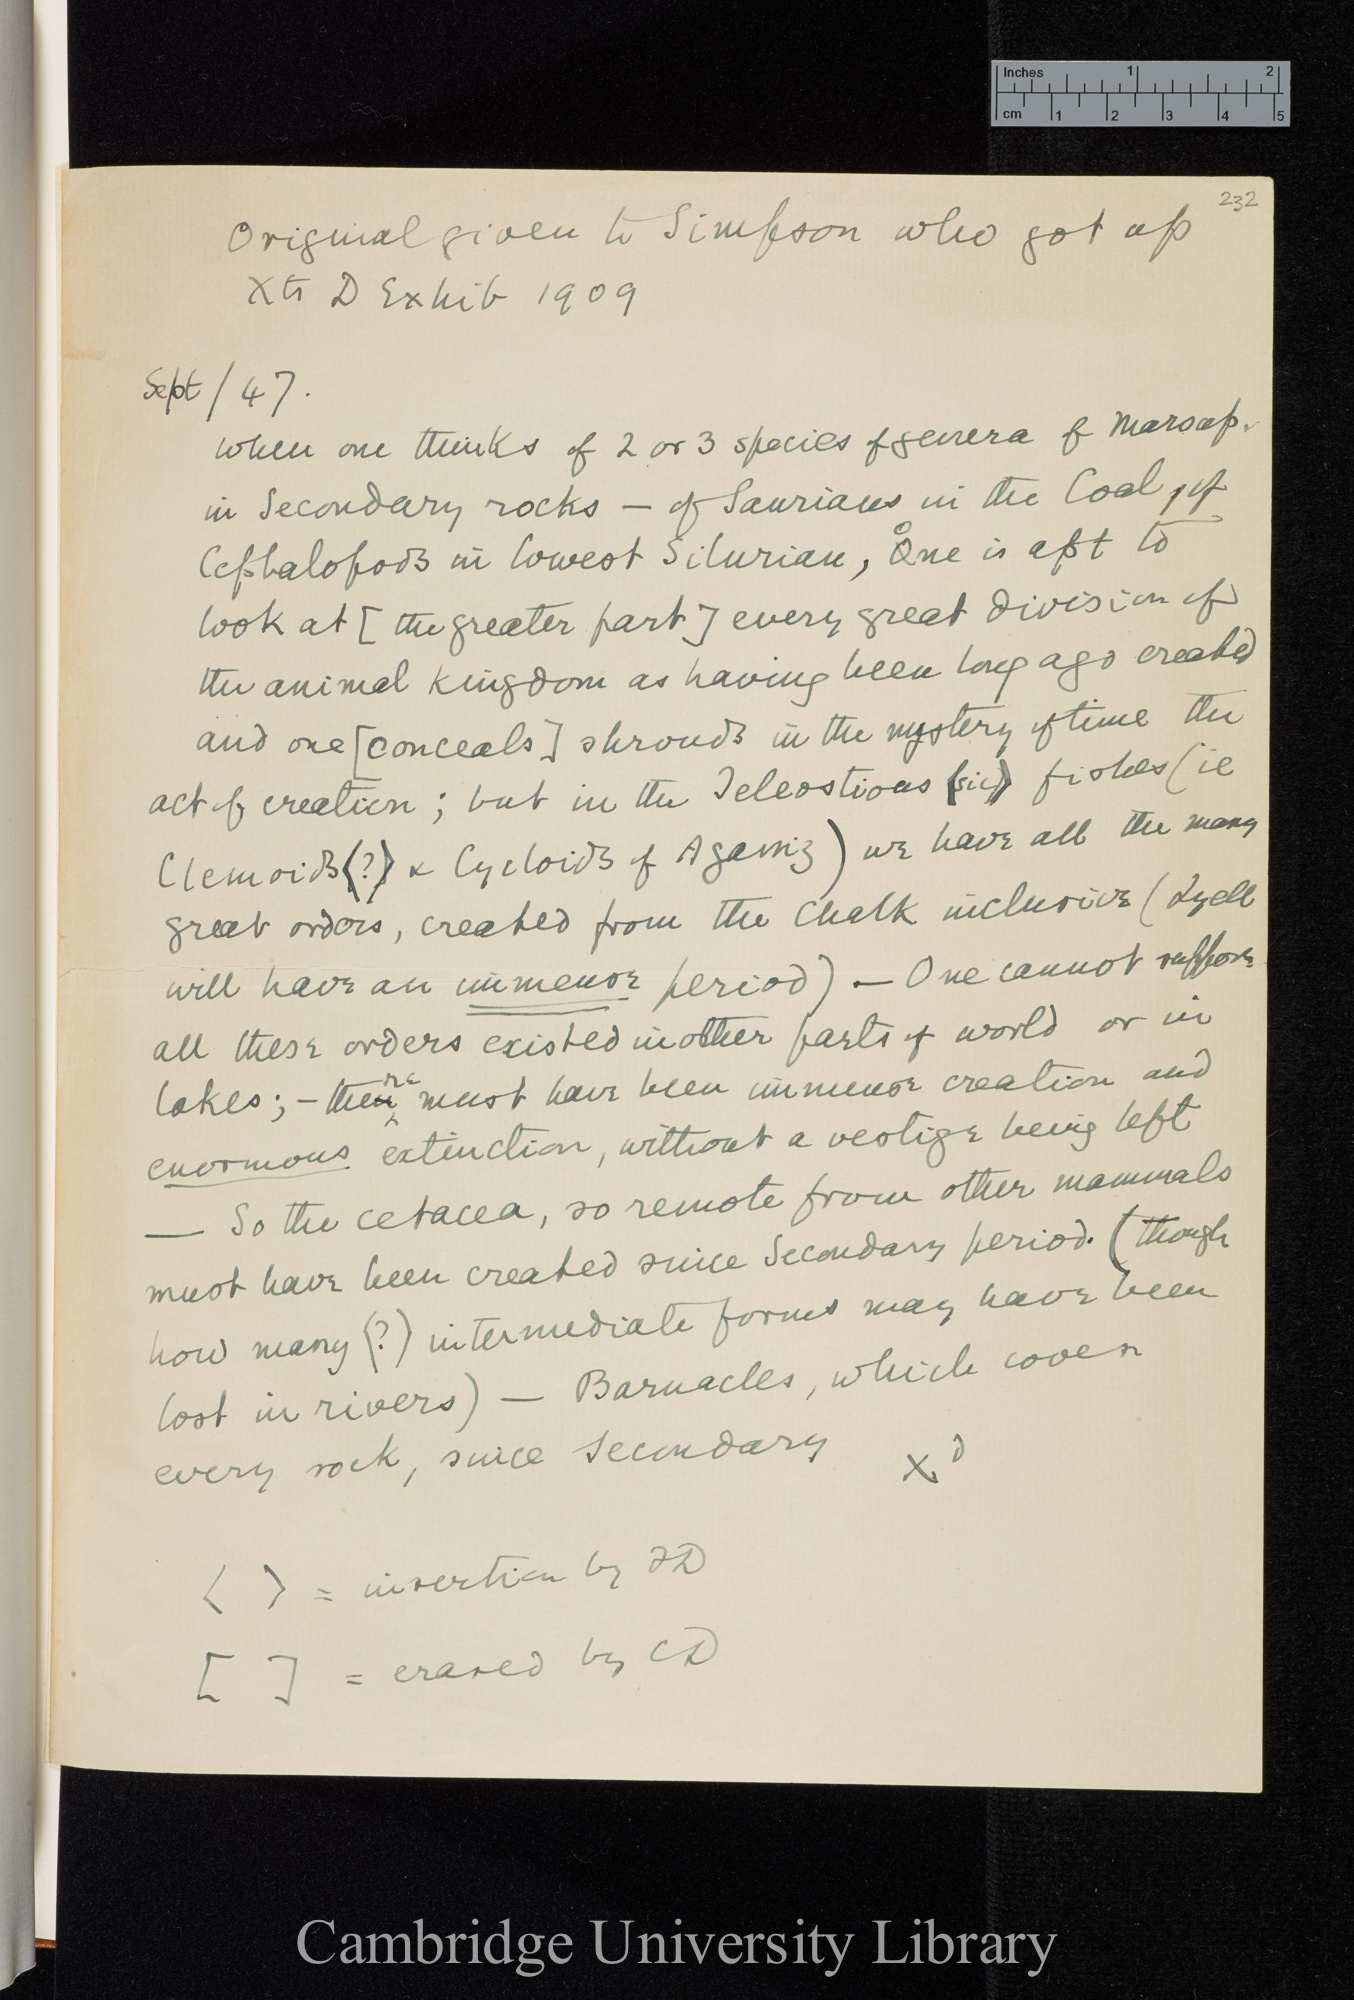 Inches 1 2
cm 1 2 3 4 5
232
Original given to Simpson who got up
Xts D Exhib 1909
Sept / 47.
When one thinks of 2 or 3 species of genera of Marsup.
in Secondary rocks — of Saurians in the Coal, of
Cephalopods in lowest Silurian, One is apt to
look at [the greater part] every great division of
the animal kingdom as having been long ago created
and one [conceals] shrouds in the mystery of time the
act of creation; but in the Teleostious <sic> fishes (ie
Clenoids <?> & Cycloids of Agassiz) we have all the many
great orders, created from the Chalk inclusive (Lyell
will have an immense period) — One cannot suppose
all these orders existed in other parts of world or in
lakes; — there must have been immense creation and
enormous extinction, without a vestige being left
— So the cetacea, so remote from other mammals
must have been created since Secondary period. (though
how many <?> intermediate forms may have been
lost in rivers) — Barnacles, which cover
every rock, since Secondary XD
< > = insertion by FD
[ ] = erased by CD
Cambridge University Library